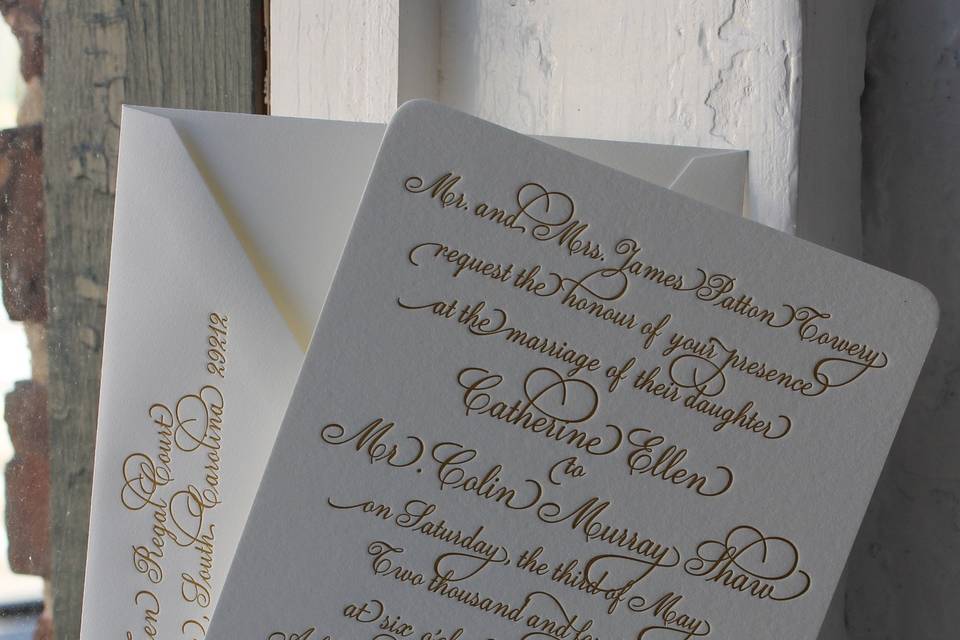 Mr. and Mrs. James Patton Towery
request the honour of your presence
at the marriage of their daughter
Catherine Ellen
to
Mr. Colin Murray Shaw
on Saturday, the third of May
Two thousand and
at six
Regal Court
South Carolina 29212